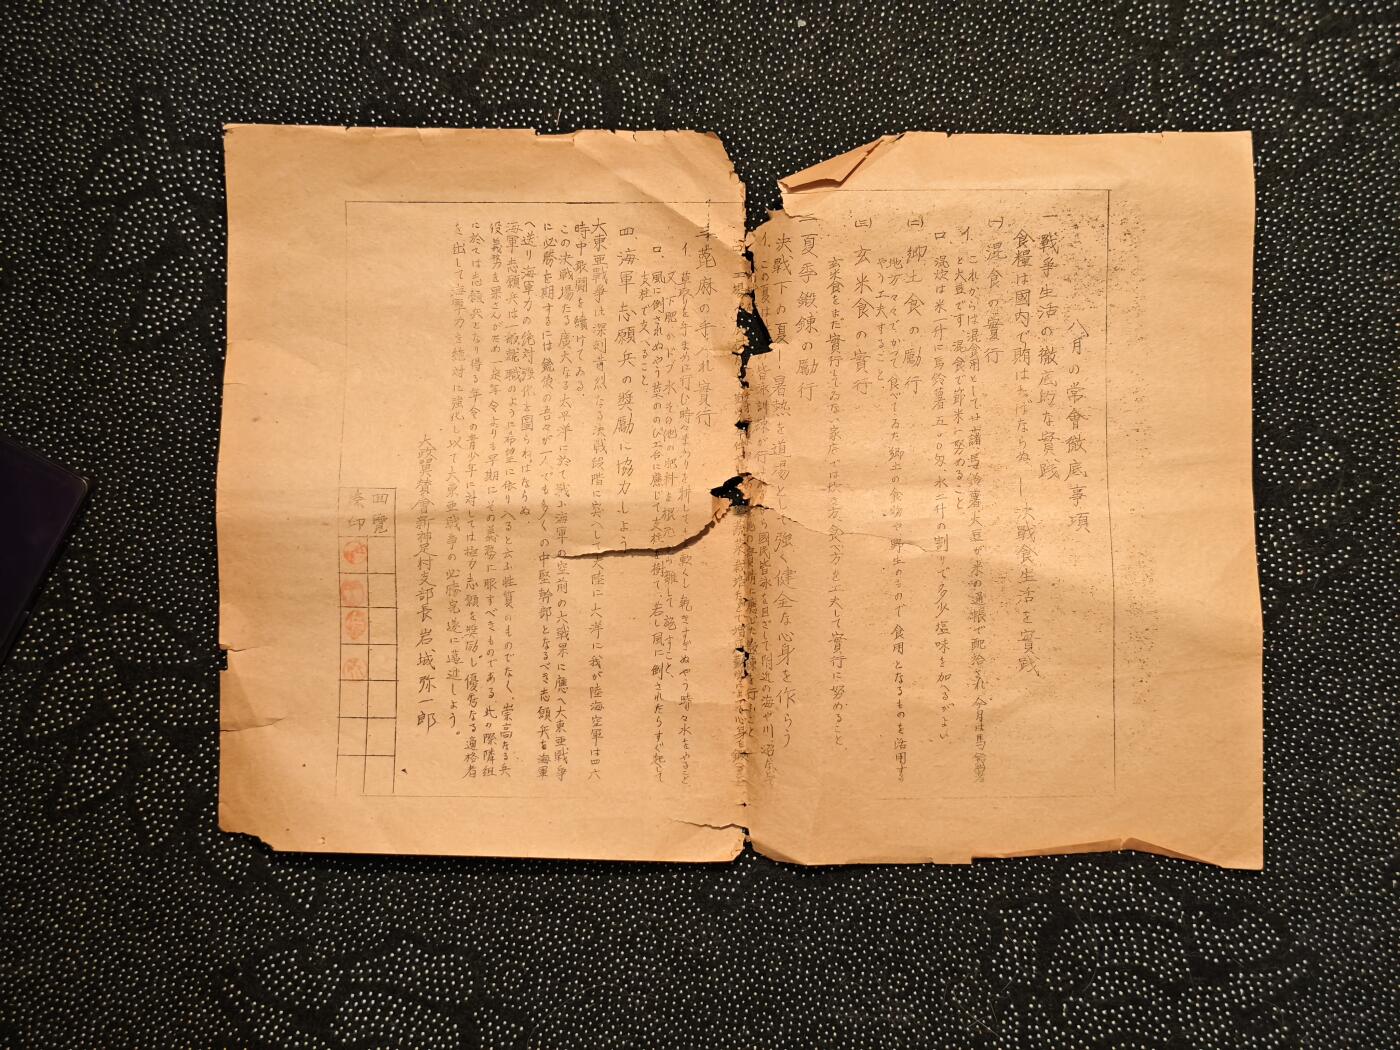 八月の常會徹底事項
一 戰争生活の徹底的な実踐
食糧は國内で賄はねばならぬ ― 決戰食生活を実踐
(一) 混食の実行
イ、これからは混食用として甘藷、馬鈴薯、大豆が米の通帳で配給され、今月は馬鈴薯
と大豆です、混食で節米に努めること
ロ、混炊は米一升に馬鈴薯五〇〇匁、水二升の割りで多少塩味を加へるがよい
(二) 郷土食の勵行
地方々々でかつて食べてゐた郷土の食物や野生のもので食用となるものを活用する
やう工夫すること
(三) 玄米食の実行
玄米食をまだ實行してゐない家庭では炊き方、食べ方を工夫して實行に努めること
二 夏季鍛錬の勵行
決戰下の夏 ― 暑熱を道場として強く健全な心身を作らう
イ、この夏は 皆泳訓練が行は から國民皆泳を目ざして附近の海や川、沼
三 蓖麻の手入れ實行
イ、草取りを早まめに行ひ時々まわりを耕して土を軟くし乾きすぎぬやう時々水をやること
又、下肥かドブ水その他の肥料を根元 離して施すこと
ロ、風に倒されぬやう葉ののび工合に應じて支柱を樹て、若し風に倒されたらすぐ起して
支柱で支へること
四 海軍志願兵の奨勵に協力しよう
大東亜戰争は深刻苛烈なる決戰段階に突入して大陸に大洋に我が陸海空軍は四六
時中敢闘を續けてゐる
この決戰場たる廣大なる太平洋に於て戰ふ海軍の空前の大戰果に應へ大東亜戰争
に必勝を期するには銃後の吾々が一人でも多くの中堅幹部となるべき志願兵を海軍
へ送り海軍力の絶対強化を圖られねばならぬ
海軍志願兵は一般就職のように希望に依り入ると云ふ性質のものでなく、崇高なる兵
役義務を果さんがため一定年令よりも早期にその義務に服すべきものである、此の際隣組
に於ては志願兵となり得る年令の青少年に対しては極力志願を奨励し優秀なる適格者
を出して海軍力を絶対に強化し以て大東亜戰争の必勝完遂に邁進しよう。
大政翼賛會新神足村支部長 岩城弥一郎
回覧
済印